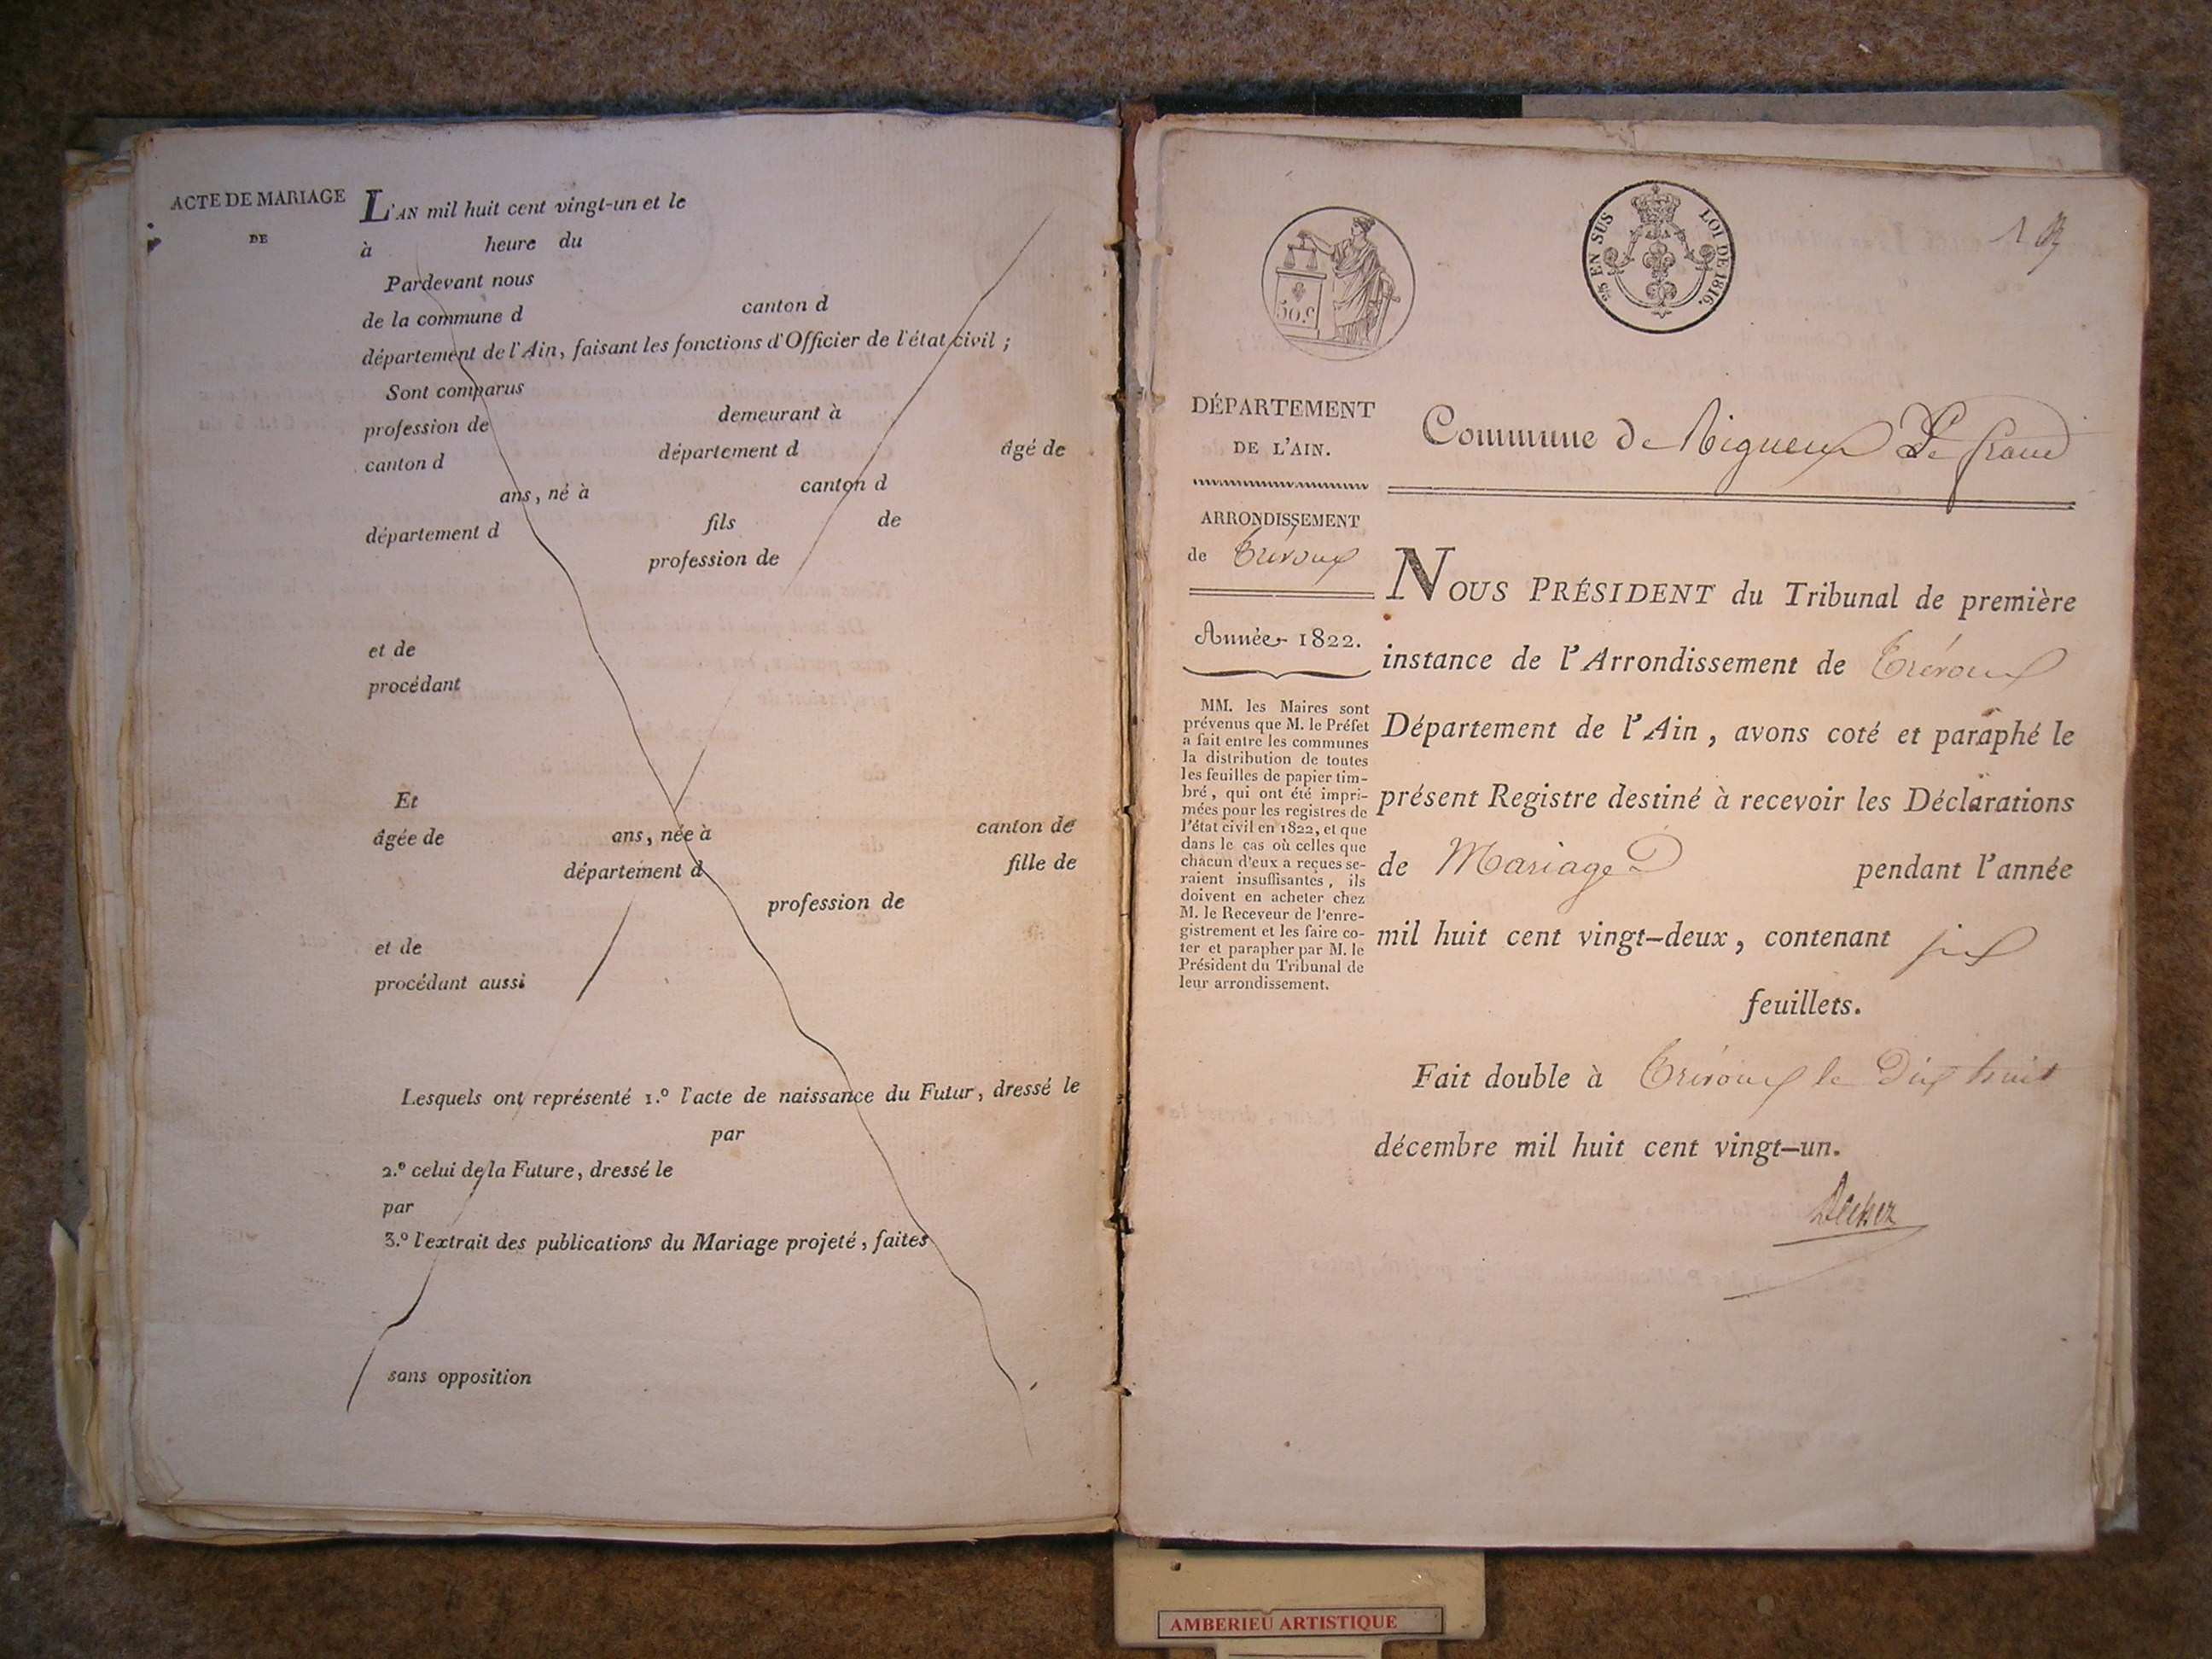 ACTE DE MARIAGE
DE
L'AN mil huit cent vingt-un et le
à heure du
Pardevant nous
de la commune d canton d
département de l'Ain, faisant les fonctions d'Officier de l'état civil ;
Sont comparus
profession de demeurant à
canton d département d âgé de
ans, né à canton d
département d fils de
profession de
et de
procédant
Et
âgée de ans, née à canton de
département d fille de
profession de
et de
procédant aussi
Lesquels ont représenté 1.º l'acte de naissance du Futur, dressé le
par
2.º celui de la Future, dressé le
par
3.º l'extrait des publications du Mariage projeté, faites
sans opposition
50 c.
25 EN SUS
LOI DE 1816.
1
DÉPARTEMENT
DE L'AIN.
ARRONDISSEMENT
de Trévoux
Année 1822.
MM. les Maires sont
prévenus que M. le Préfet
a fait entre les communes
la distribution de toutes
les feuilles de papier tim-
bré, qui ont été impri-
mées pour les registres de
l'état civil en 1822, et que
dans le cas où celles que
chacun d'eux a reçues se-
raient insuffisantes, ils
doivent en acheter chez
M. le Receveur de l'enre-
gistrement et les faire co-
ter et parapher par M. le
Président du Tribunal de
leur arrondissement.
Commune de Rigneux Le franc
NOUS PRÉSIDENT du Tribunal de première
instance de l'Arrondissement de Trévoux
Département de l'Ain, avons coté et paraphé le
présent Registre destiné à recevoir les Déclarations
de Mariage pendant l'année
mil huit cent vingt-deux, contenant six
feuillets.
Fait double à Trévoux le dix huit
décembre mil huit cent vingt-un.
AMBERIEU ARTISTIQUE